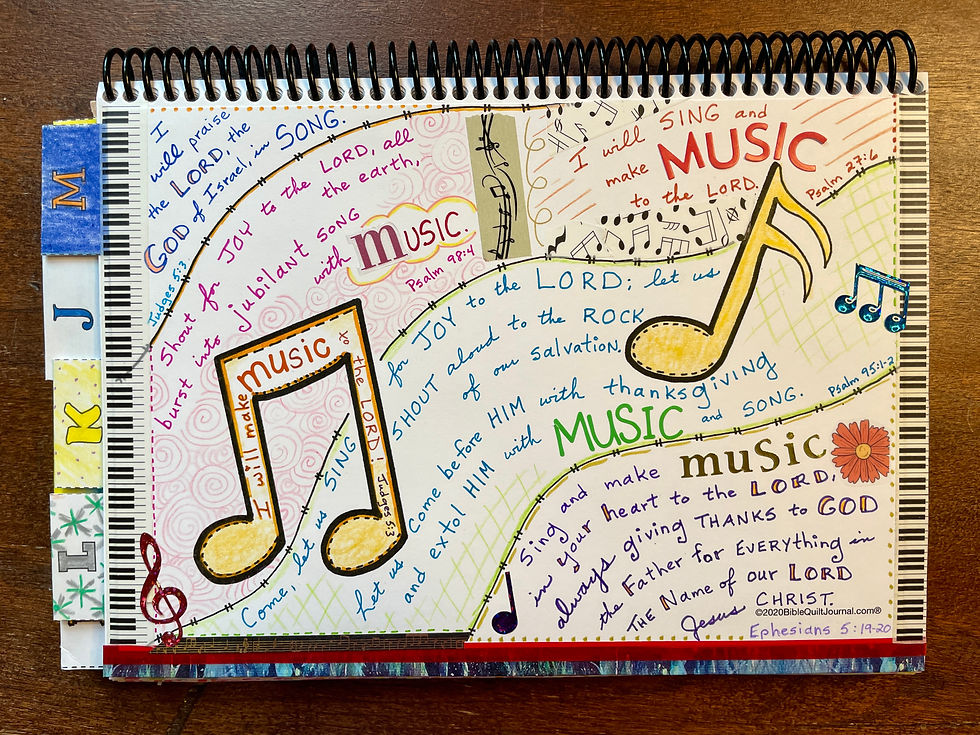 I
will praise
the LORD, the
GOD of Israel, in SONG.
Judges 5:3
Shout for JOY to the LORD, all
the earth,
burst into jubilant SONG
with MUSIC.
Psalm 98:4
I will SING and
make MUSIC
to the LORD.
Psalm 27:6
I will make music to the LORD! Judges 5:3
Come, let us SING for JOY to the LORD; let us
SHOUT aloud to the ROCK
of our salvation.
Let us Come before HIM with thanksgiving
and extol HIM with MUSIC and SONG.
Psalm 95:1-2
Sing and make music
in your heart to the LORD,
always giving THANKS to GOD
the Father for EVERYthing in
THE Name of our LORD
Jesus CHRIST.
©2020BibleQuiltJournal.com®
Ephesians 5:19-20
M
J
K
L